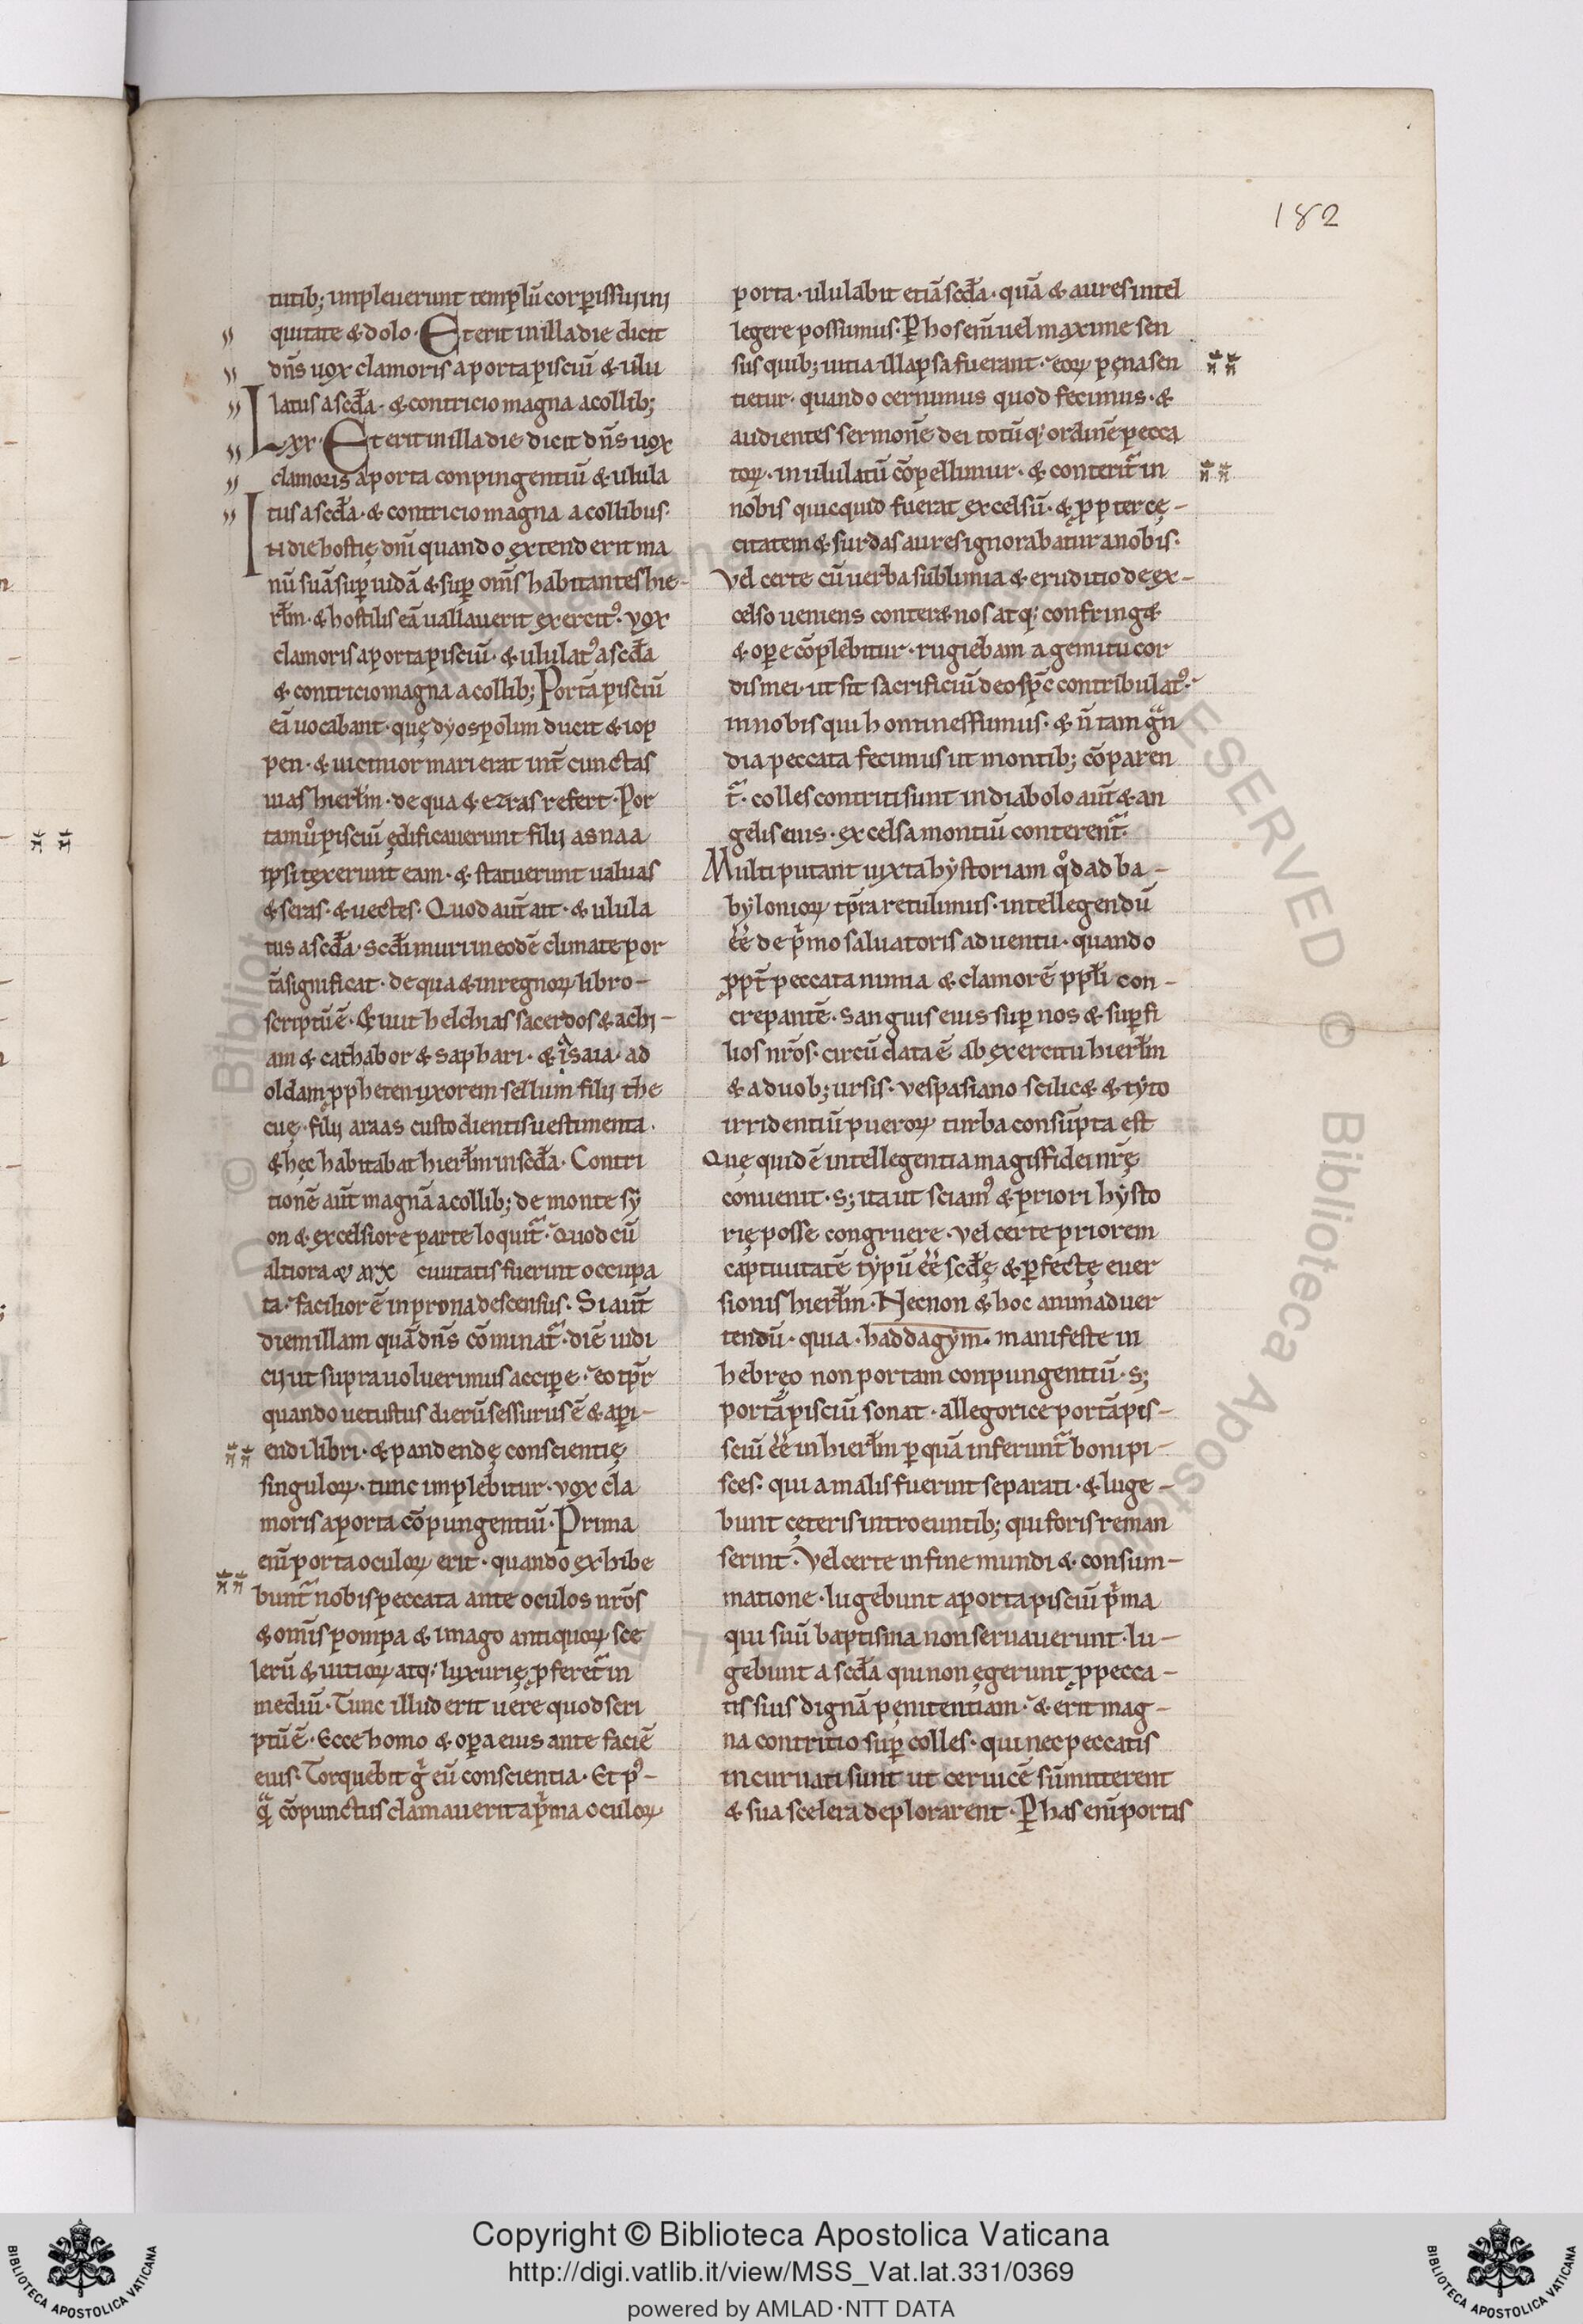 182
tutib; impleuerunt templū corporis sui ini
quitate & dolo. Et erit in illa die dicit
dn̄s uox clamoris a porta pisciū & ulu
latus a scđa. & contricio magna a collib;
Lxx. Et erit in illa die dicit dn̄s uox
clamoris a porta conpingentiū & ulula
tus a scđa. & contricio magna a collibus.
In die hostię dnī quando extenderit ma
nū suā sup iudā & sup om̄s habitantes hie-
rłm. & hostilis eā uallauerit exercit᾽. uox
clamoris a porta pisciū. & ululat᾽ a scđa
& contricio magna a collib; Portā pisciū
eā uocabant. quę dyospolim ducit & iop
pen. & uicinior mari erat int̄ cunctas
uias hierłm. de qua & ezras refert. Por
tam ů pisciū ędificauerunt filii asnaa
ipsi texerunt eam. & statuerunt ualuas
& seras. & uectes. Quod aut̄ ait. & ulula
tus a scđa. scđi muri in eodē climate por
tā significat. de qua & in regnoꝝ libro-
scriptū ē. & iuit helchias sacerdos & achi-
am & cathabor & saphari. & isaia. ad
oldam ꝓpheten uxorem sellum filii the
cuę. filii araas custodientis uestimenta.
& hęc habitabat hierłm in scđa. Contri
tionē aut̄ magnā a collib; de monte sy
on & excelsiore parte loquit̄. Quod cū
altiora & arx ciuitatis fuerint occupa
ta. facilior ē in prona descensus. Si aut̄
diem illam quā dn̄s cōminat̄. diē iudi
cii ut supra uoluerimus accipe. eo tp̄r
quando uetustus dierū sessurus ē & apı-
endi libri. & pandendę conscientię
singuloꝝ. tunc implebitur. uox cla
moris a porta cōpungentiū. Prima
eni porta oculoꝝ erit. quando exhibe
bunt̄ nobis peccata ante oculos nr̄os
& om̄is pompa & imago antiquoꝝ sce
lerū & uitioꝝ atq; luxurię ꝓferet̄ in
mediū. Tunc illud erit uere quod scri
ptū ē. Ecce homo & opa eius ante faciē
eius. Torquebit g̊ eū conscientia. Et p᾽-
q̄ cōpunctus clamauerit a p̄ma oculoꝝ
porta. ululabit etiā scđa. quā & aures intel
legere possumus. P hos eni uel maxime sen
sus quib; uitia illapsa fuerant. eoꝝ pęna sen
tietur. quando cernimus quod fecimus. &
audientes sermonē dei totūq; ordinē pecca
toꝝ. in ululatū cōpellimur. & conterit̄ in
nobis quicquid fuerat excelsū. & ꝓpter cę-
citatem & surdas aures ignorabatur a nobis.
Vel certe cū uerba sublimia & eruditio de ex-
celso ueniens conter& nos atq; confring&
& ope cōplebitur. rugiebam a gemitu cor
dis mei. ut sit sacrificiū deo sp̄c contribulat᾽.
in nobis qui homines sumus. & n̄ tam gn
dia peccata fecimus ut montib; cōparen
t̄. colles contriti sunt in diabolo aut̄ & an
gelis eius. excelsa montiū conterent̄.
Multi putant iuxta hystoriam qd ad ba-
bylonioꝝ tp̄ra retulimus. intellegendū
ēē de p̄mo saluatoris aduentu. quando
ꝓpt̄ peccata nimia & clamorē ppłi con-
crepantē. sanguis eius sup nos & sup fi
lios nr̄os. circūdata ē ab exercitu hierłm
& a duob; ursis. uespasiano scilic& & tyto
irridentiū pueroꝝ turba consūpta est
Quę quidē intellegentia magis fidei nr̄ę
conuenit. s; ita ut sciam᾽ & priori hysto
rię posse congruere. vel certe priorem
captiuitatē typū ēē scđę & pfectę euer
sionis hierłm. Necnon & hoc animaduer
tendū. quia. haddagym. manifeste in
hebręo non portam conpungentiū. s;
portā pisciū sonat. allegorice portā pis-
sciū ēē in hierłm p quā inferunt̄ boni pi-
sces. qui a malis fuerint separati. & luge-
bunt cęteris introeuntib; qui foris reman
serint. Vel certe in fine mundi & consum-
matione. lugebunt a porta pisciū p̄ma
qui suū baptisma non seruauerunt. lu-
gebunt a scđa qui non ęgerunt ꝓ pecca-
tis suis dignā pęnitentiam. & erit mag-
na contritio sup colles. qui nec peccatis
incuruati sunt ut ceruicē sūmitterent
& sua scelera deplorarent. P has eni portas
Copyright © Biblioteca Apostolica Vaticana
http://digi.vatlib.it/view/MSS_Vat.lat.331/0369
powered by AMLAD·NTT DATA
BIBLIOTECA APOSTOLICA VATICANA
BIBLIOTECA APOSTOLICA VATICANA